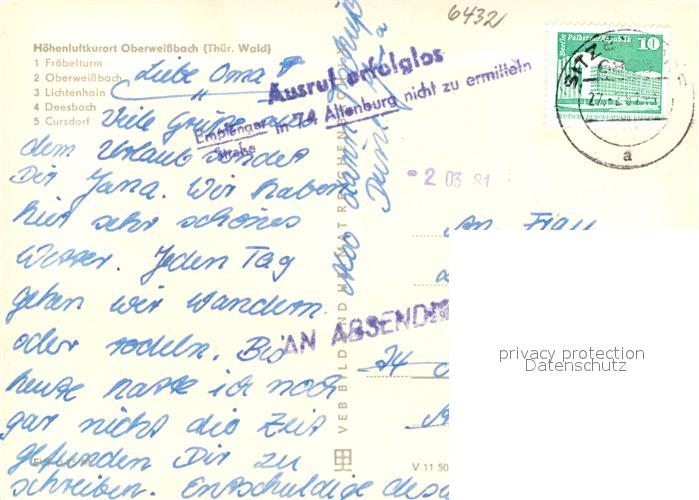 6432
Höhenluftkurort Oberweißbach (Thür. Wald)
1 Fröbelturm
2 Oberweißbach
3 Lichtenhain
4 Deesbach
5 Cursdorf
Liebe Oma
Viele Grüße aus
dem Urlaub sendet
Dir Jana. Wir haben
hier sehr schönes
Wetter. Jeden Tag
gehen wir wandern
oder rodeln. Bis
heute hatte ich noch
gar nicht die Zeit
gefunden Dir zu
schreiben. Entschuldige
Also
Deine
Ausruf erfolglos
Empfänger in 74 Altenburg nicht zu ermitteln
Straße
- 2 03 81
AN ABSEND
An Frau
74
VEB BILD UND HEIMAT REICHENBACH
V 11 50
Berlin Palast der Republik
10
DEUTSCHE DEMOKRATISCHE REPUBLIK
SITZE
27.-2.81
a
privacy protection
Datenschutz